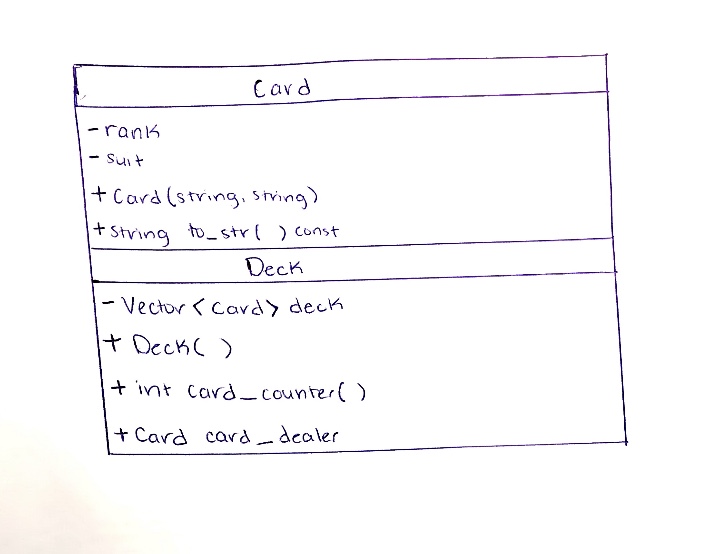 Card
- rank
- suit
+ Card(string, string)
+ string to_str( ) const
Deck
- Vector<Card> deck
+ Deck( )
+ int card_counter( )
+ Card card_dealer